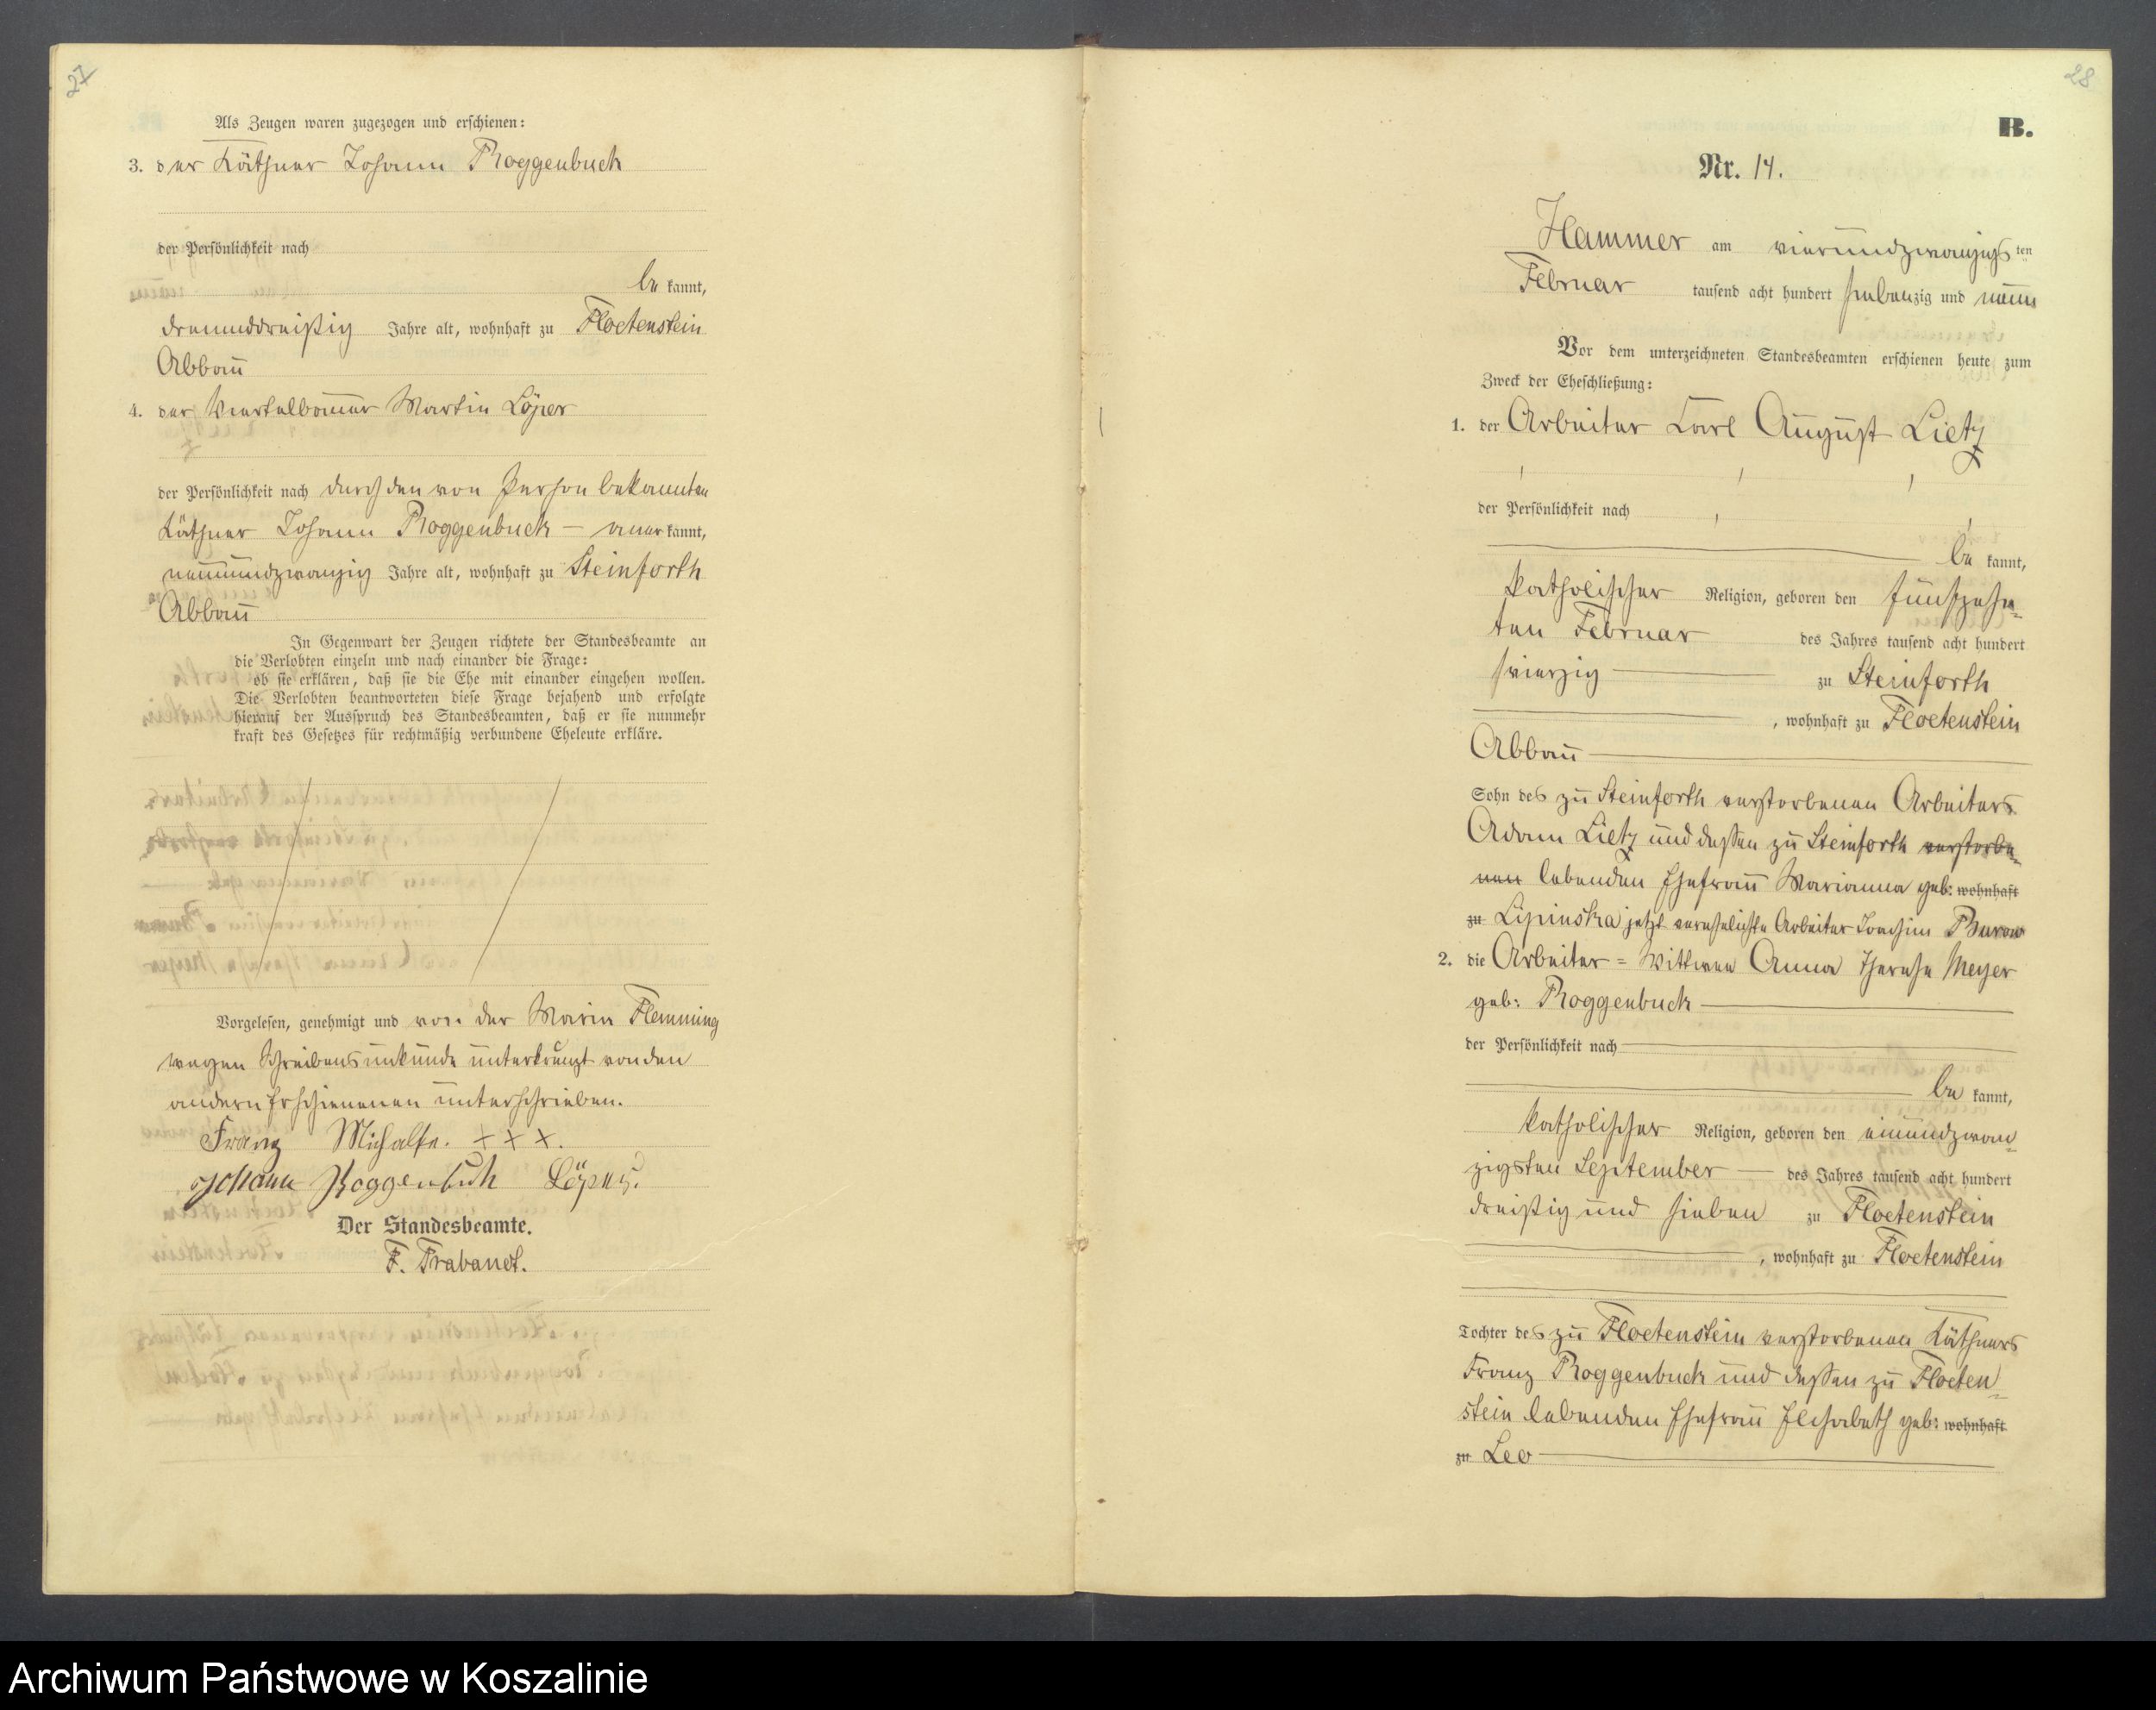 27
Als Zeugen waren zugezogen und erschienen:
3. der Käthner Johann Roggenbuck
der Persönlichkeit nach
be kannt,
dreiunddreißig Jahre alt, wohnhaft zu Floetenstein
Abbau
4. der Viertelbauer Martin Löper
der Persönlichkeit nach durch den von Person bekannten
Käthner Johann Roggenbuck — aner kannt,
neunundzwanzig Jahre alt, wohnhaft zu Steinforth
Abbau
In Gegenwart der Zeugen richtete der Standesbeamte an
die Verlobten einzeln und nach einander die Frage:
ob sie erklären, daß sie die Ehe mit einander eingehen wollen.
Die Verlobten beantworteten diese Frage bejahend und erfolgte
hierauf der Ausspruch des Standesbeamten, daß er sie nunmehr
kraft des Gesetzes für rechtmäßig verbundene Eheleute erkläre.
Vorgelesen, genehmigt und von der Marie Flemming
wegen Schreibensunkunde unterkreuzt von den
andern Erschienenen unterschrieben.
Franz Michalke. + + +.
Johann Roggenbuk Löper.
Der Standesbeamte.
F. Trabandt.
28
B.
Nr. 14.
Hammer am vierundzwanzigs ten
Februar tausend acht hundert siebenzig und neun
Vor dem unterzeichneten Standesbeamten erschienen heute zum
Zweck der Eheschließung:
1. der Arbeiter Carl August Lietz
der Persönlichkeit nach
be kannt,
katholischer Religion, geboren den fünfzehn-
ten Februar des Jahres tausend acht hundert
vierzig — zu Steinforth
, wohnhaft zu Floetenstein
Abbau —
Sohn des zu Steinforth verstorbenen Arbeiters
Adam Lietz und dessen zu Steinforth verstorbe-
nen lebenden Ehefrau Marianna geb: wohnhaft
zu Lipinska jetzt verehelichte Arbeiter Joachim Burow
2. die Arbeiter = Wittwe Anna Therese Meyer
geb: Roggenbuck —
der Persönlichkeit nach
be kannt,
katholischer Religion, geboren den einundzwan
zigsten September — des Jahres tausend acht hundert
dreißig und sieben zu Floetenstein
, wohnhaft zu Floetenstein
Tochter des zu Floetenstein verstorbenen Käthners
Franz Roggenbuck und dessen zu Floeten-
stein lebenden Ehefrau Elisabeth geb: wohnhaft
zu Leo —
Archiwum Państwowe w Koszalinie